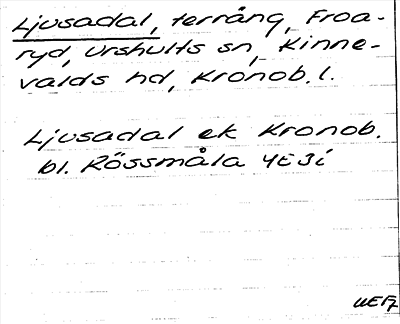 Ljusadal, terräng, Froa-
ryd, Urshults sn, Kinne-
valds hd, Kronob. l.
Ljusadal ek Kronob.
bl. Rössmåla 4E3i